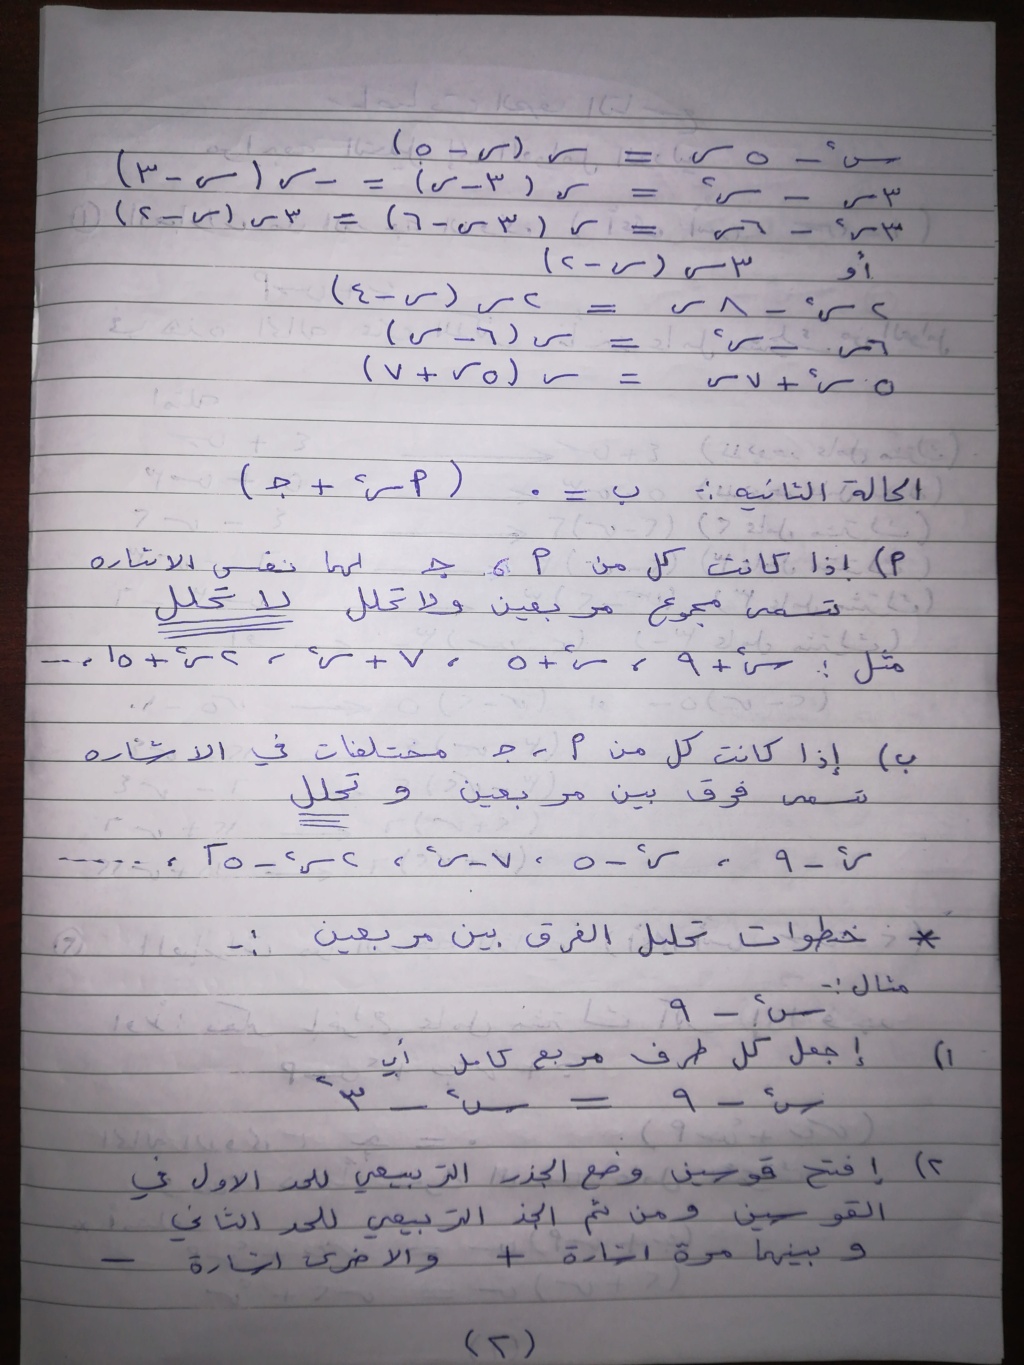 س² - ٥س = س (س - ٥)
٣س - س² = س (٣ - س) = -س (س - ٣)
٣س² - ٦س = س (٣س - ٦) = ٣س (س - ٢)
أو ٣س (س - ٢)
٢س² - ٨س = ٢س (س - ٤)
٦س - س² = س (٦ - س)
٥س² + ٧س = س (٥س + ٧)
الحالة الثانيه :- ب = ٠ (أس² + جـ)
أ) إذا كانت كل من أ ، جـ لهما نفس الاشاره
تسمى مجموع مربعين ولا تحلل لا تحلل
مثل : س² + ٩ ، س² + ٥ ، ٧ + س² ، ٢س² + ١٥ ، ...
ب) إذا كانت كل من أ ، جـ مختلفات في الاشاره
تسمى فرق بين مربعين و تحلل
س² - ٩ ، س² - ٥ ، ٧ - س² ، ٢س² - ٢٥ ، ......
* خطوات تحليل الفرق بين مربعين :-
مثال :-
س² - ٩
١) إجعل كل طرف مربع كامل أي
س² - ٩ = س² - ٣²
٢) إفتح قوسين وضع الجذر التربيعي للحد الاول في
القوسين ومن ثم الجذ التربيعي للحد الثاني
و بينهما مرة اشارة + والاخرى اشارة -
(٢)